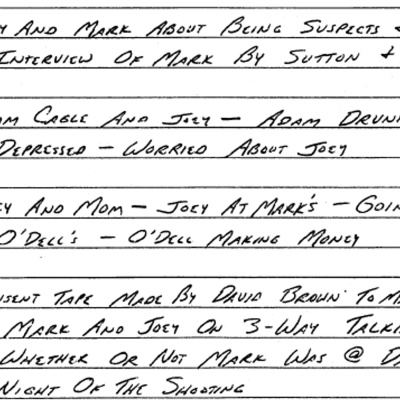 AND MARK ABOUT BEING SUSPECTS
INTERVIEW OF MARK BY SUTTON +
CAGLE AND JOEY — ADAM
DEPRESSED — WORRIED ABOUT JOEY
AND MOM — JOEY AT MARK'S —
O'DELL'S — O'DELL MAKING MONEY
TAPE MADE BY DAVID BROWN TO
MARK AND JOEY ON 3-WAY
WHETHER OR NOT MARK WAS @
NIGHT OF THE SHOOTING